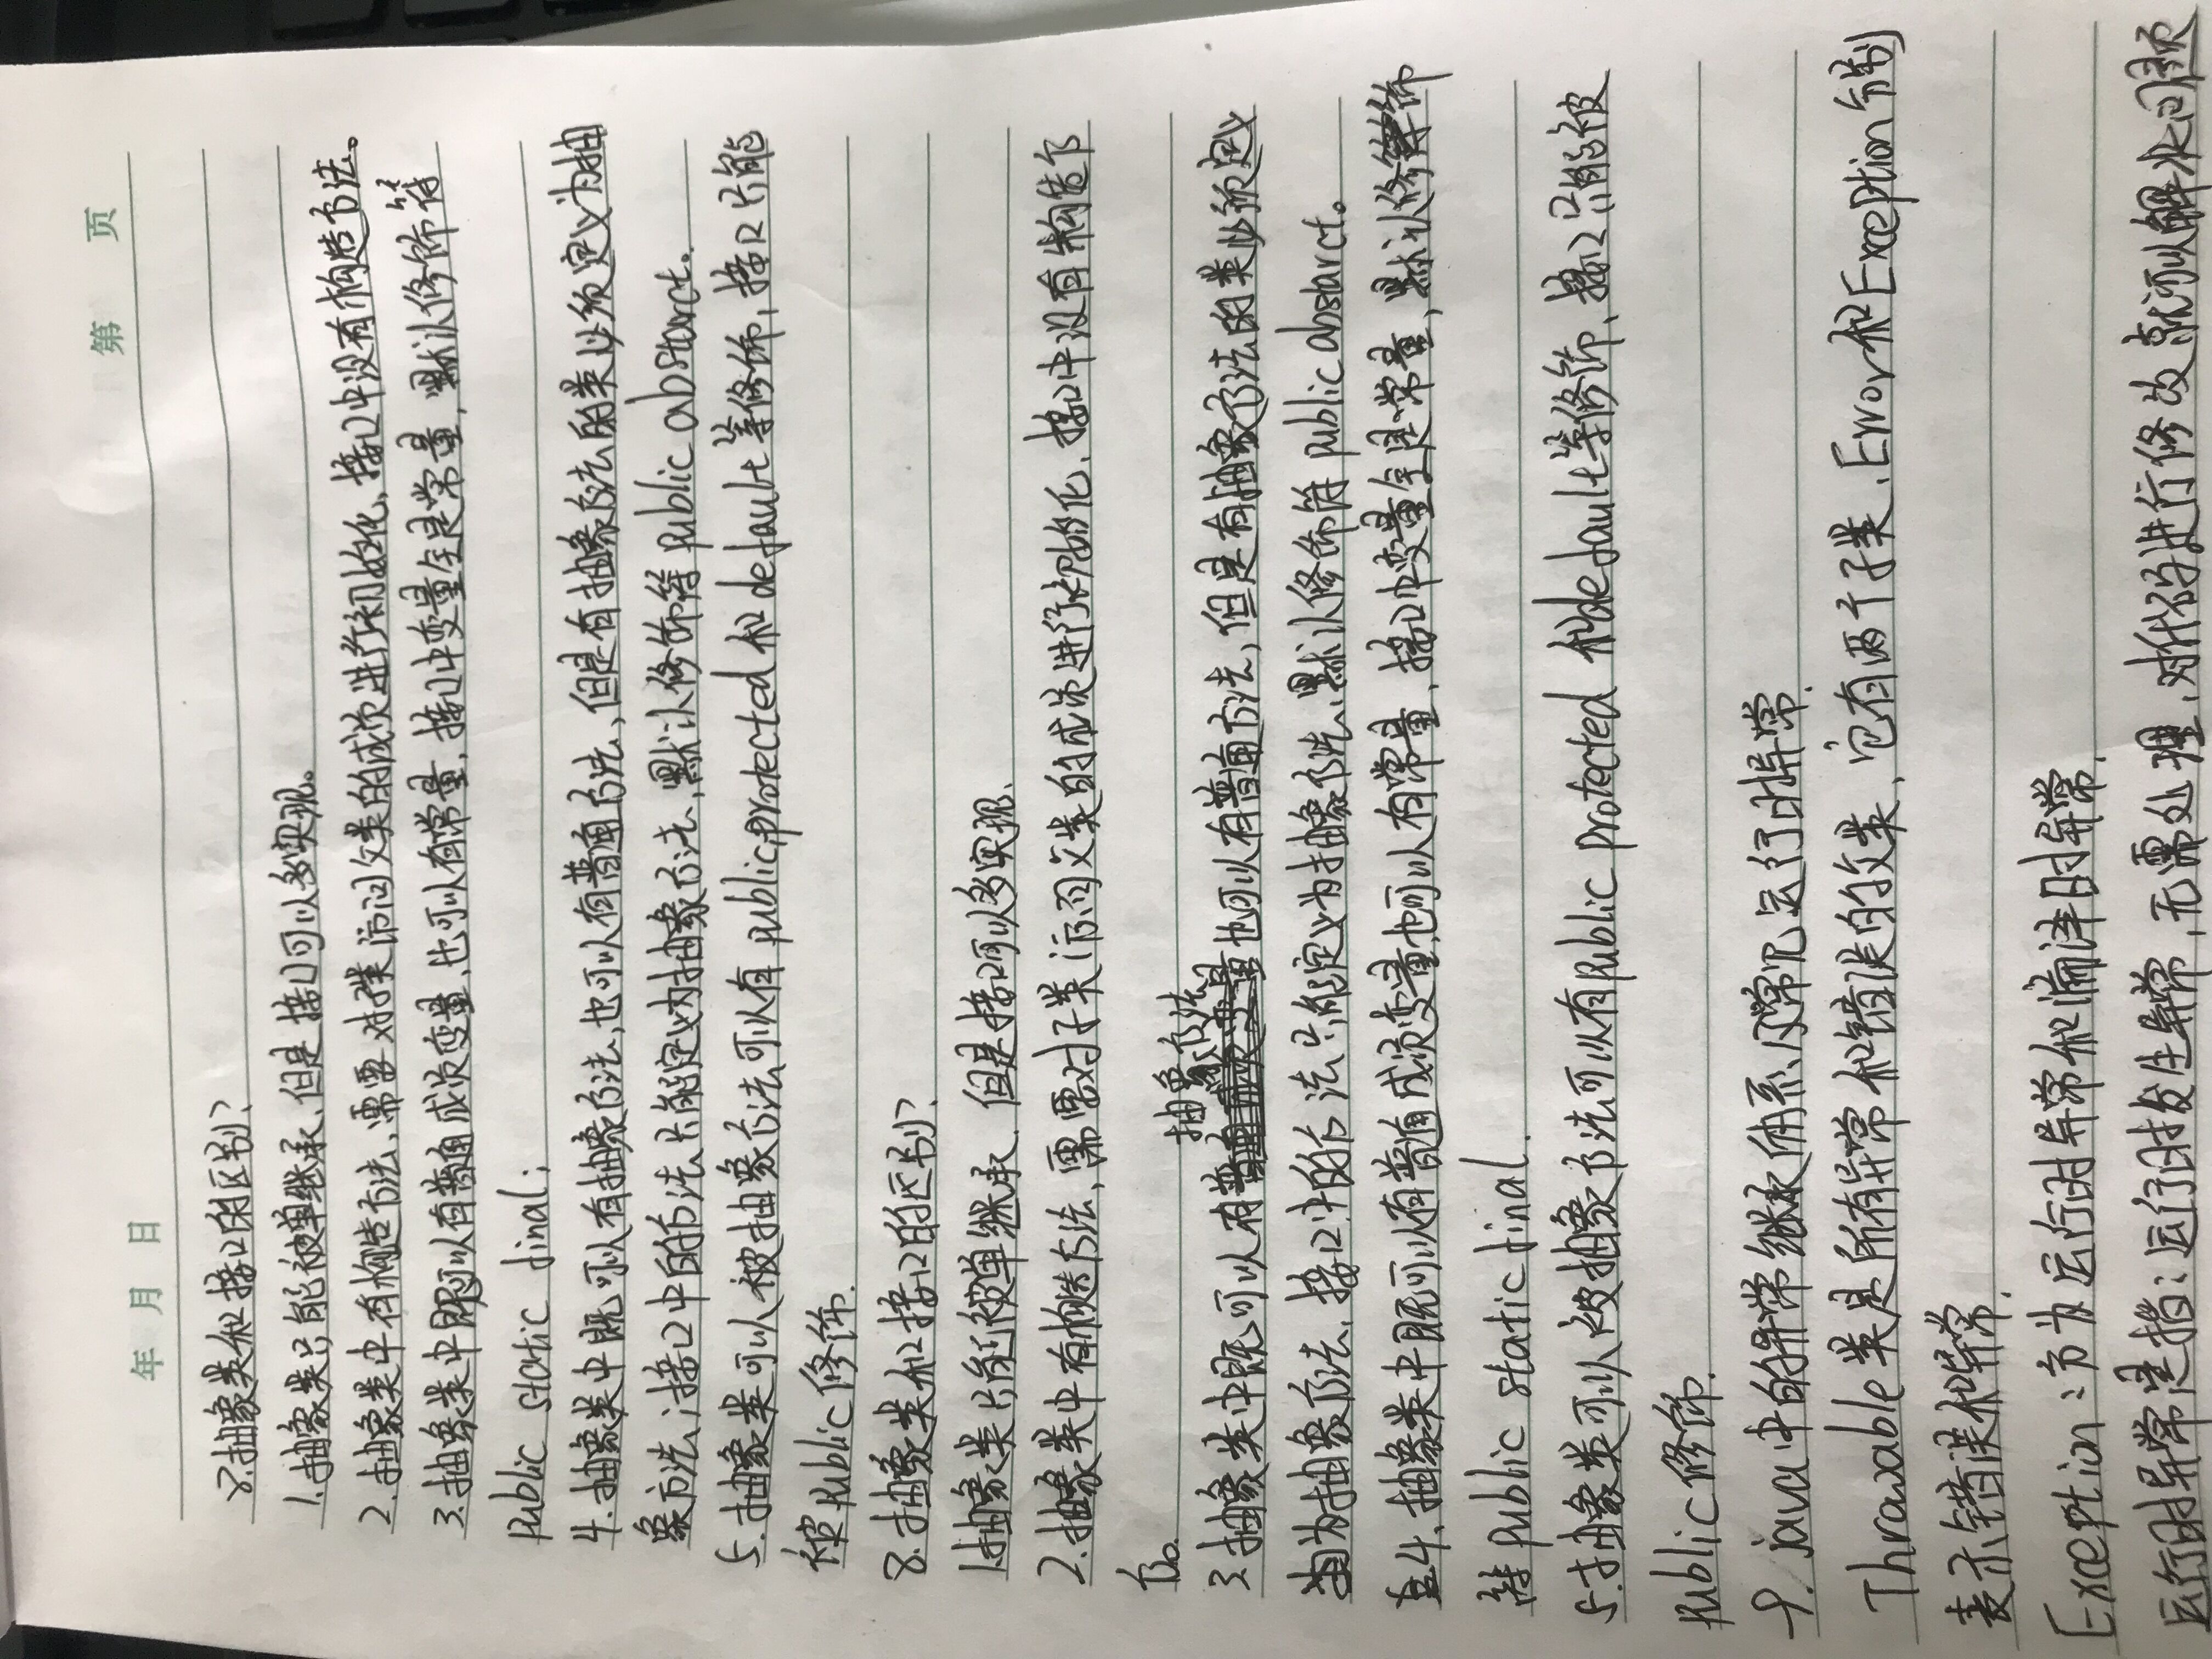 年 月 日
第 页
8.抽象类和接口的区别?
1.抽象类只能被单继承,但是接口可以多实现。
2.抽象类中有构造方法,需要对子类访问父类的成员进行初始化,接口中没有构造方法。
3.抽象类中既可以有普通成员变量,也可以有常量,接口中变量全是常量,默认修饰符
public static final;
4.抽象类中既可以有抽象方法,也可以有普通方法,但是有抽象方法的类必须定义为抽
象方法;接口中的方法只能定义为抽象方法,默认修饰符public abstarct。
5.抽象类可以被抽象方法可以有public,protected和default等修饰,接口只能
被public修饰.
8.抽象类和接口的区别?
1.抽象类只能被单继承.但是接口可以多实现.
2.抽象类中有构造方法,需要对子类访问父类的成员进行初始化,接口中没有构造方
方。
抽象方法
3.抽象类中既可以有普通成员变量也可以有普通方法,但是有抽象方法的类必须定义
为抽象方法,接口中的方法只能定义为抽象方法,默认修饰符public abstarct。
4、抽象类中既可以有普通成员变量,也可以有常量,接口中变量全是常量,默认修饰
符public static final.
5.抽象类可以被抽象方法可以有public protected 和default等修饰,接口只能被
public修饰.
9.java中的异常继承体系及常见运行时异常.
Throwable类是所有异常和错误的父类,它有两个子类,Error和Exception分别
表示错误和异常.
Exception:分为运行时异常和编译时异常.
运行时异常是指:运行时发生异常,无需处理,对代码进行修改就可以解决问题